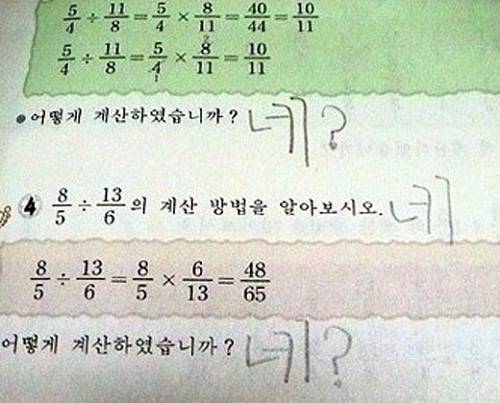 5/4 ÷ 11/8 = 5/4 × 8/11 = 40/44 = 10/11
5/4 ÷ 11/8 = 5/4 × 8/11 = 10/11
2
1
•어떻게 계산하였습니까? 네?
4 8/5 ÷ 13/6 의 계산 방법을 알아보시오. 네
8/5 ÷ 13/6 = 8/5 × 6/13 = 48/65
어떻게 계산하였습니까? 네?